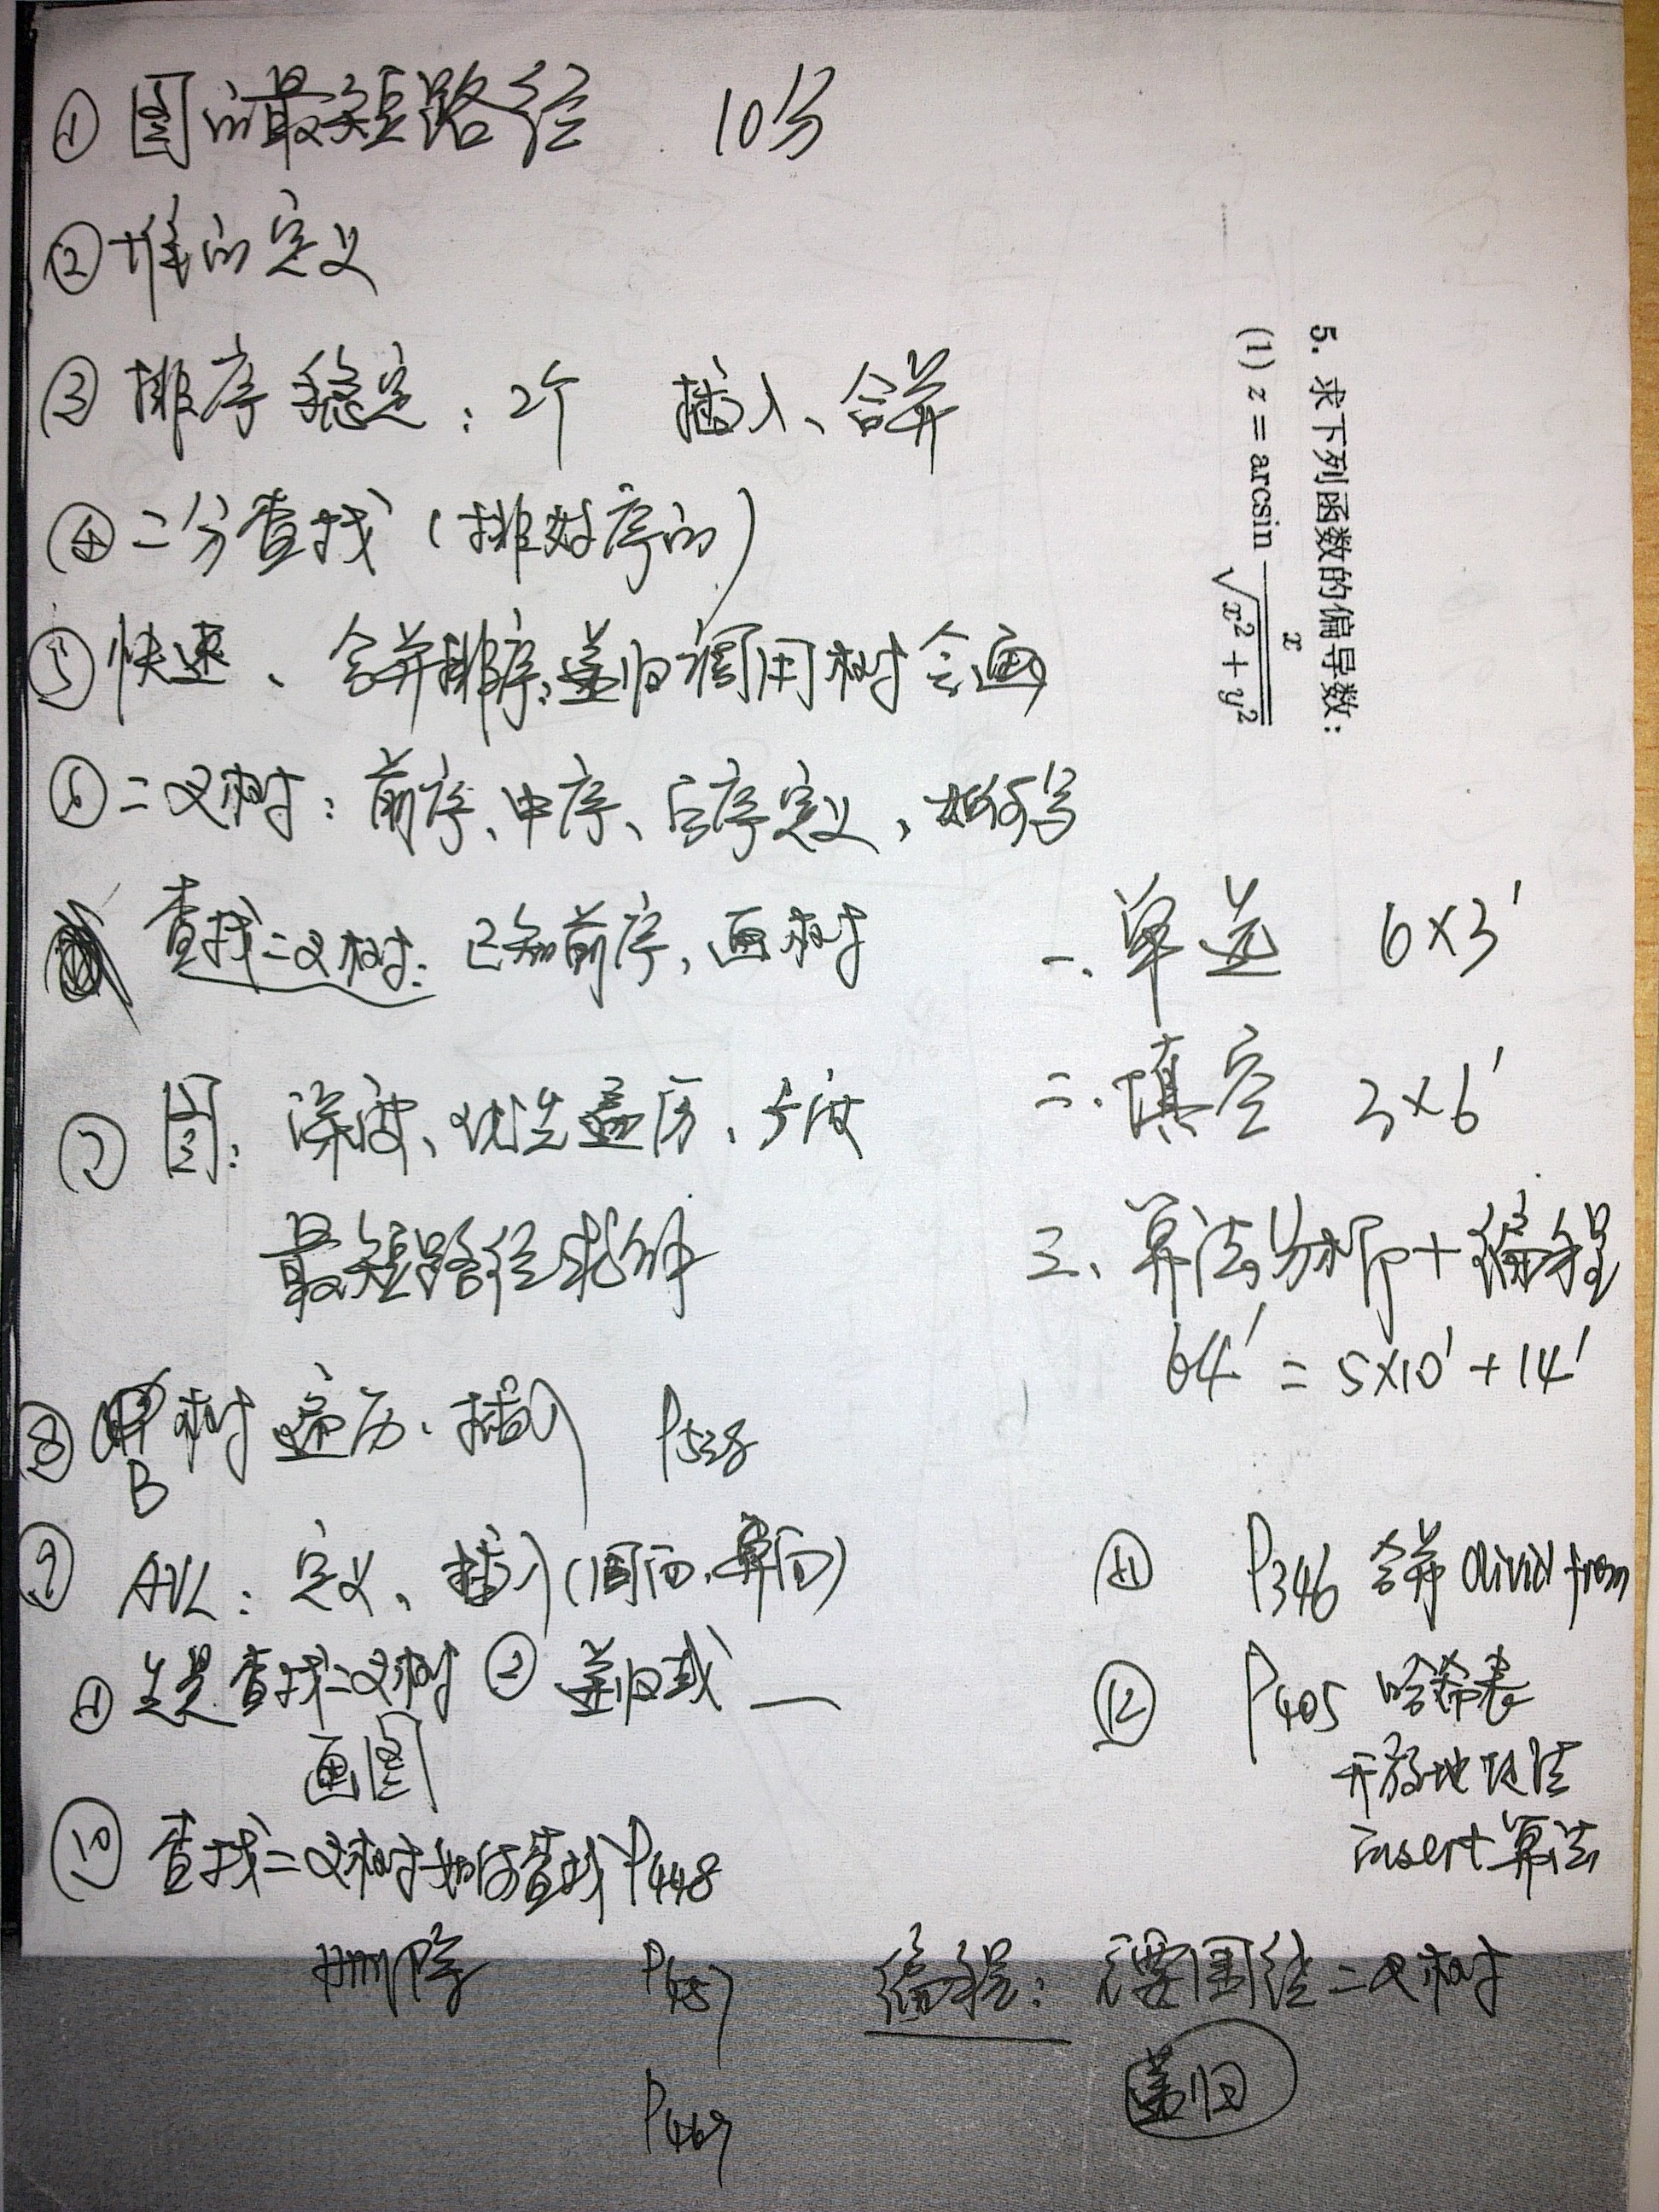 ① 图的最短路径 10分
② 堆的定义
③ 排序稳定：2个 插入、合并
④ 二分查找（排好序的）
⑤ 快速、合并排序：递归调用树会画
⑥ 二叉树：前序、中序、后序定义，如何写
查找二叉树：已知前序，画树
⑦ 图：深度、优先遍历、广度
最短路径求解
⑧ 树遍历、插入 P528
B
⑨ AVL：定义、插入
① 先是查找二叉树 ② 递归或 —
画图
⑩ 查找二叉树如何查找 P448
删除 P457
P469
5. 求下列函数的偏导数：
(1) z = arcsin x/√(x²+y²)
一、单选 6×3'
二、填空 3×6'
三、算法分析+编程
64' = 5×10' + 14'
⑪ P346 合并 divid from
⑫ P405 哈希表
开放地址法
insert 算法
编程：主要围绕二叉树
递归